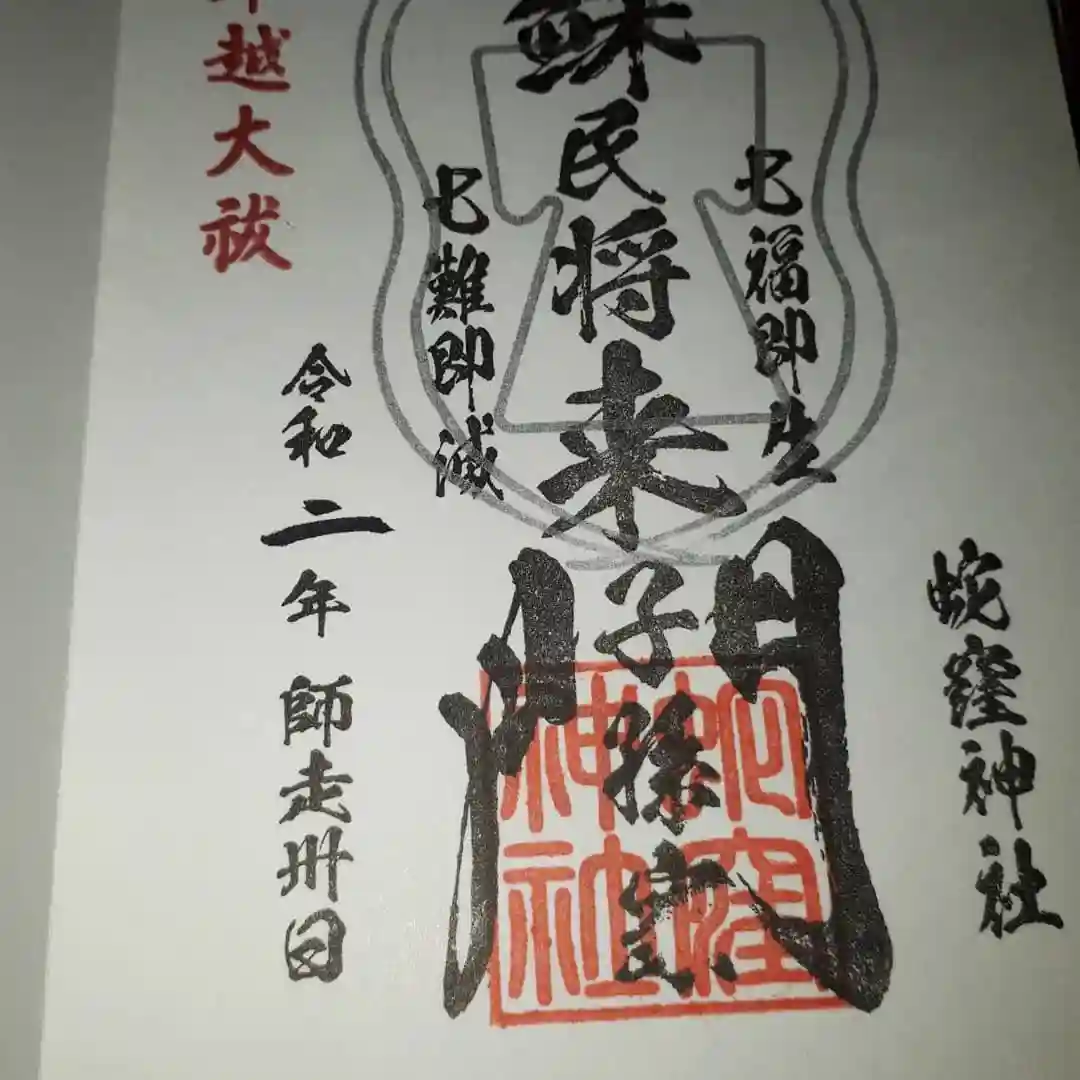 蛇窪神社
七福即生
蘇民将来子孫家門
七難即滅
令和二年師走卅日
越大祓
蛇窪神社